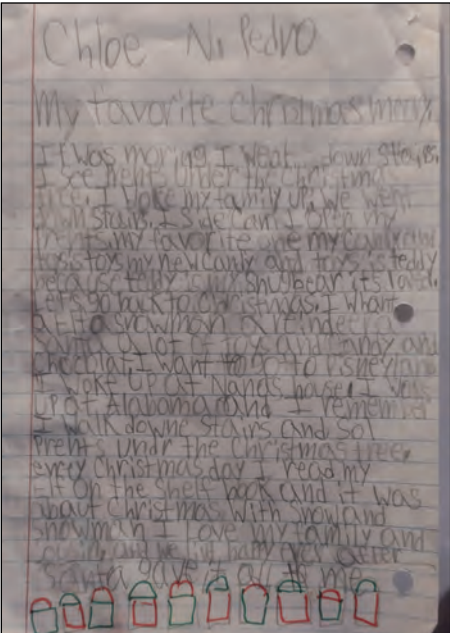 Chloe Ni Pedro
My favorite Christmas
It Was moring I Weat down Staies.
I see Prents Under the Christma
tree. I Woke my family up, we went
down stairs. I side Can I open my
Prents, my favorite one my Candy and
toys my new Candy and toys is teddy
because teddy is my snugbear its loved.
Let's go back to Christmas. I Whant
a snowman a reindeer a
Santa a lot of toys and Candy and
Chocolat. I want to go to Disneyland
I Woke UP at Nanas house. I Was
UP at Alabama and I remember
I Walk downe Stairs and Sol
Prents Undr the Christmas tree.
every Christmas day I read my
Elf On the Shelf book and it was
about Christmas with Snow and
Snowman I love my family and
and we live happy aver after
Santa gave it all to me